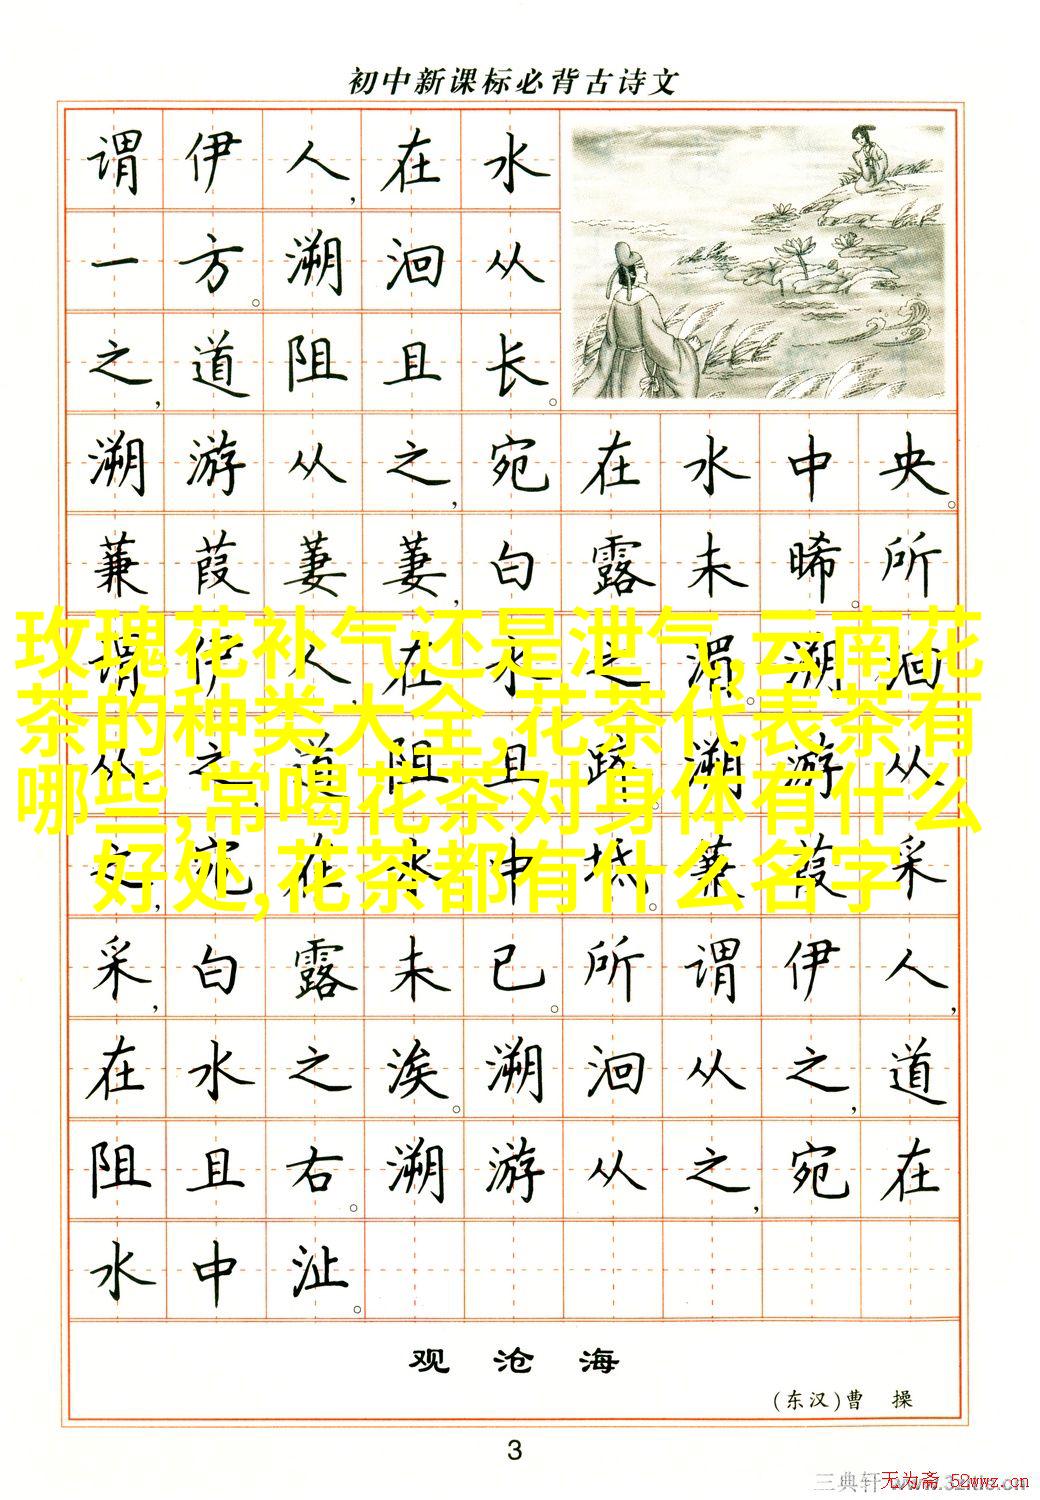 初中新课标必背古诗文
谓伊人,在水
一方。溯洄从
之,道阻且长。
溯游从之,宛在水中央。
蒹葭萋萋,白露未晞。所
谓伊人,在水之湄。溯洄
从之,道阻且跻。溯游从
之,宛在水中坻。蒹葭采
采,白露未已。所谓伊人,
在水之涘。溯洄从之,道
阻且右。溯游从之,宛在
水中沚。
玫瑰花补气还是泄气,云南花
茶的种类大全,花茶代表茶有
哪些,常喝花茶对身体有什么
好处,花茶都有什么名字
观沧海
(东汉)曹 操
3
三典轩
无为斋 52wwz.cn